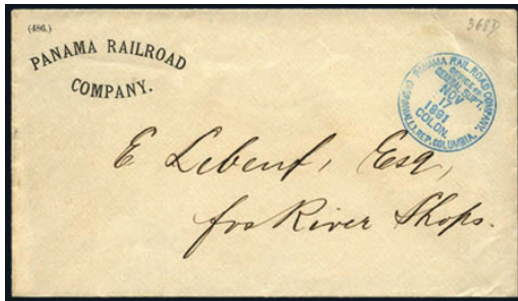 (486.)
PANAMA RAILROAD
COMPANY.
368
PANAMA RAIL ROAD COMPANY.
OFFICE OF
GENERAL SUPT.
NOV
17
1891
COLON.
(ASPINWALL), REP. COLUMBIA.
E Lebeuf, Esq,
fox River Shops.